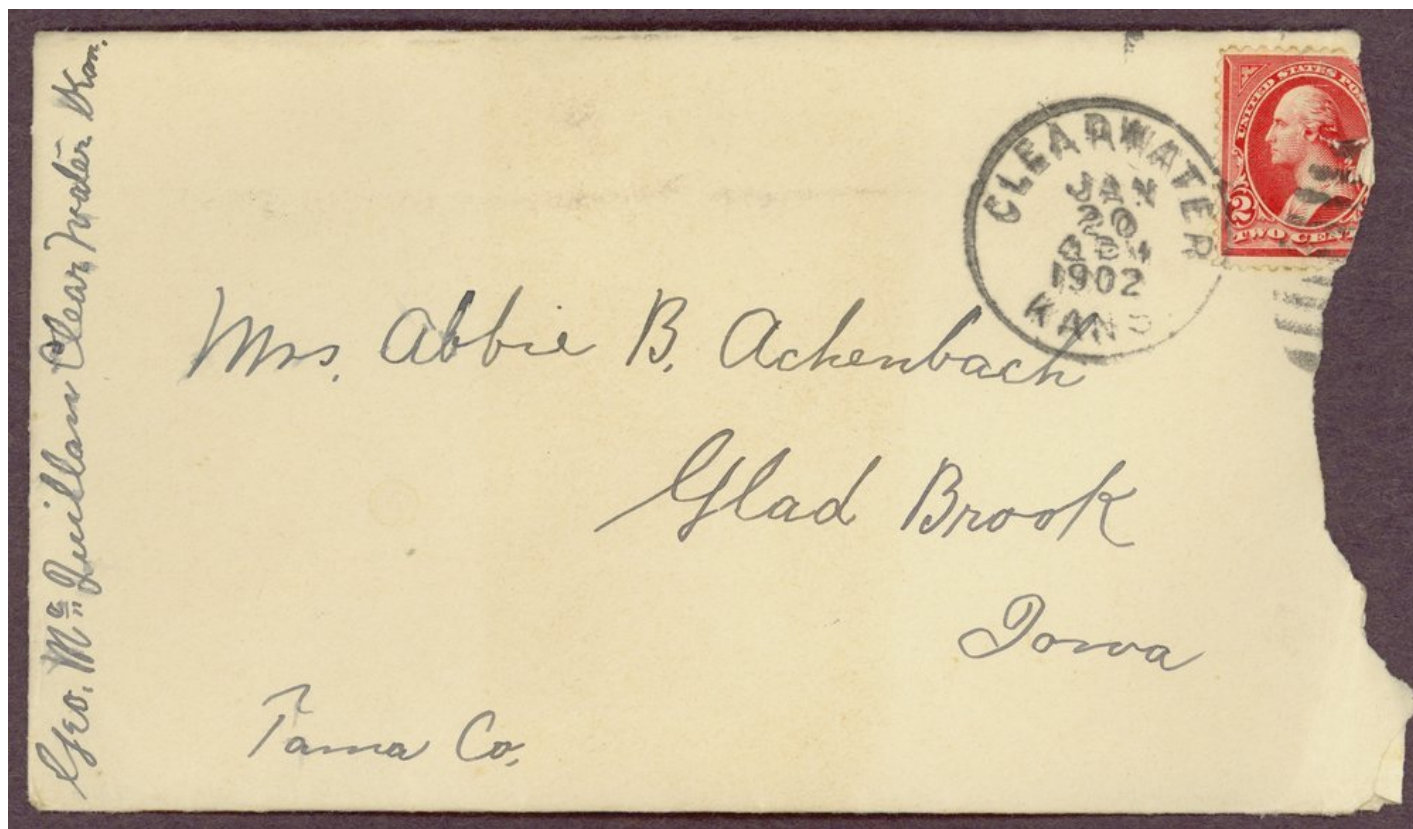 Geo. Mc Quillan Clear Water Kan.
CLEARWATER
JAN
20
1902
KANS
UNITED STATES PO
2
TWO CENT
Mrs. Abbie B. Achenbach
Glad Brook
Iowa
Tama Co.